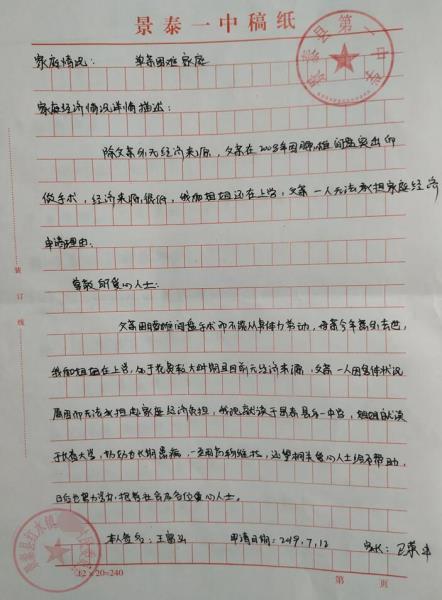 景泰一中稿纸
景泰县第一中学
家庭情况： 单亲困难家庭
家庭经济情况详情描述：
除父亲外无经济来源，父亲在2003年因腰椎间盘突出而
做手术，经济来源很低，我和姐姐还在上学，父亲一人无法承担家庭经济
申请理由：
尊敬的爱心人士：
父亲因腰椎间盘手术而不能从事体力劳动，母亲今年意外去世，
我和姐姐在上学，处于花费较大时期且目前无经济来源，父亲一人因身体状况
原因而无法承担起家庭经济负担，我现就读于景泰县第一中学，姐姐就读
于长春大学，长期患病，一直用药物维持，还望相关爱心人士给予帮助，
日后必努力学习，把报社会及各位爱心人士。
本人签名：王 申请日期：2019.7.12 家长：
景泰县红水镇
12×20=240
第 页
装 订 线